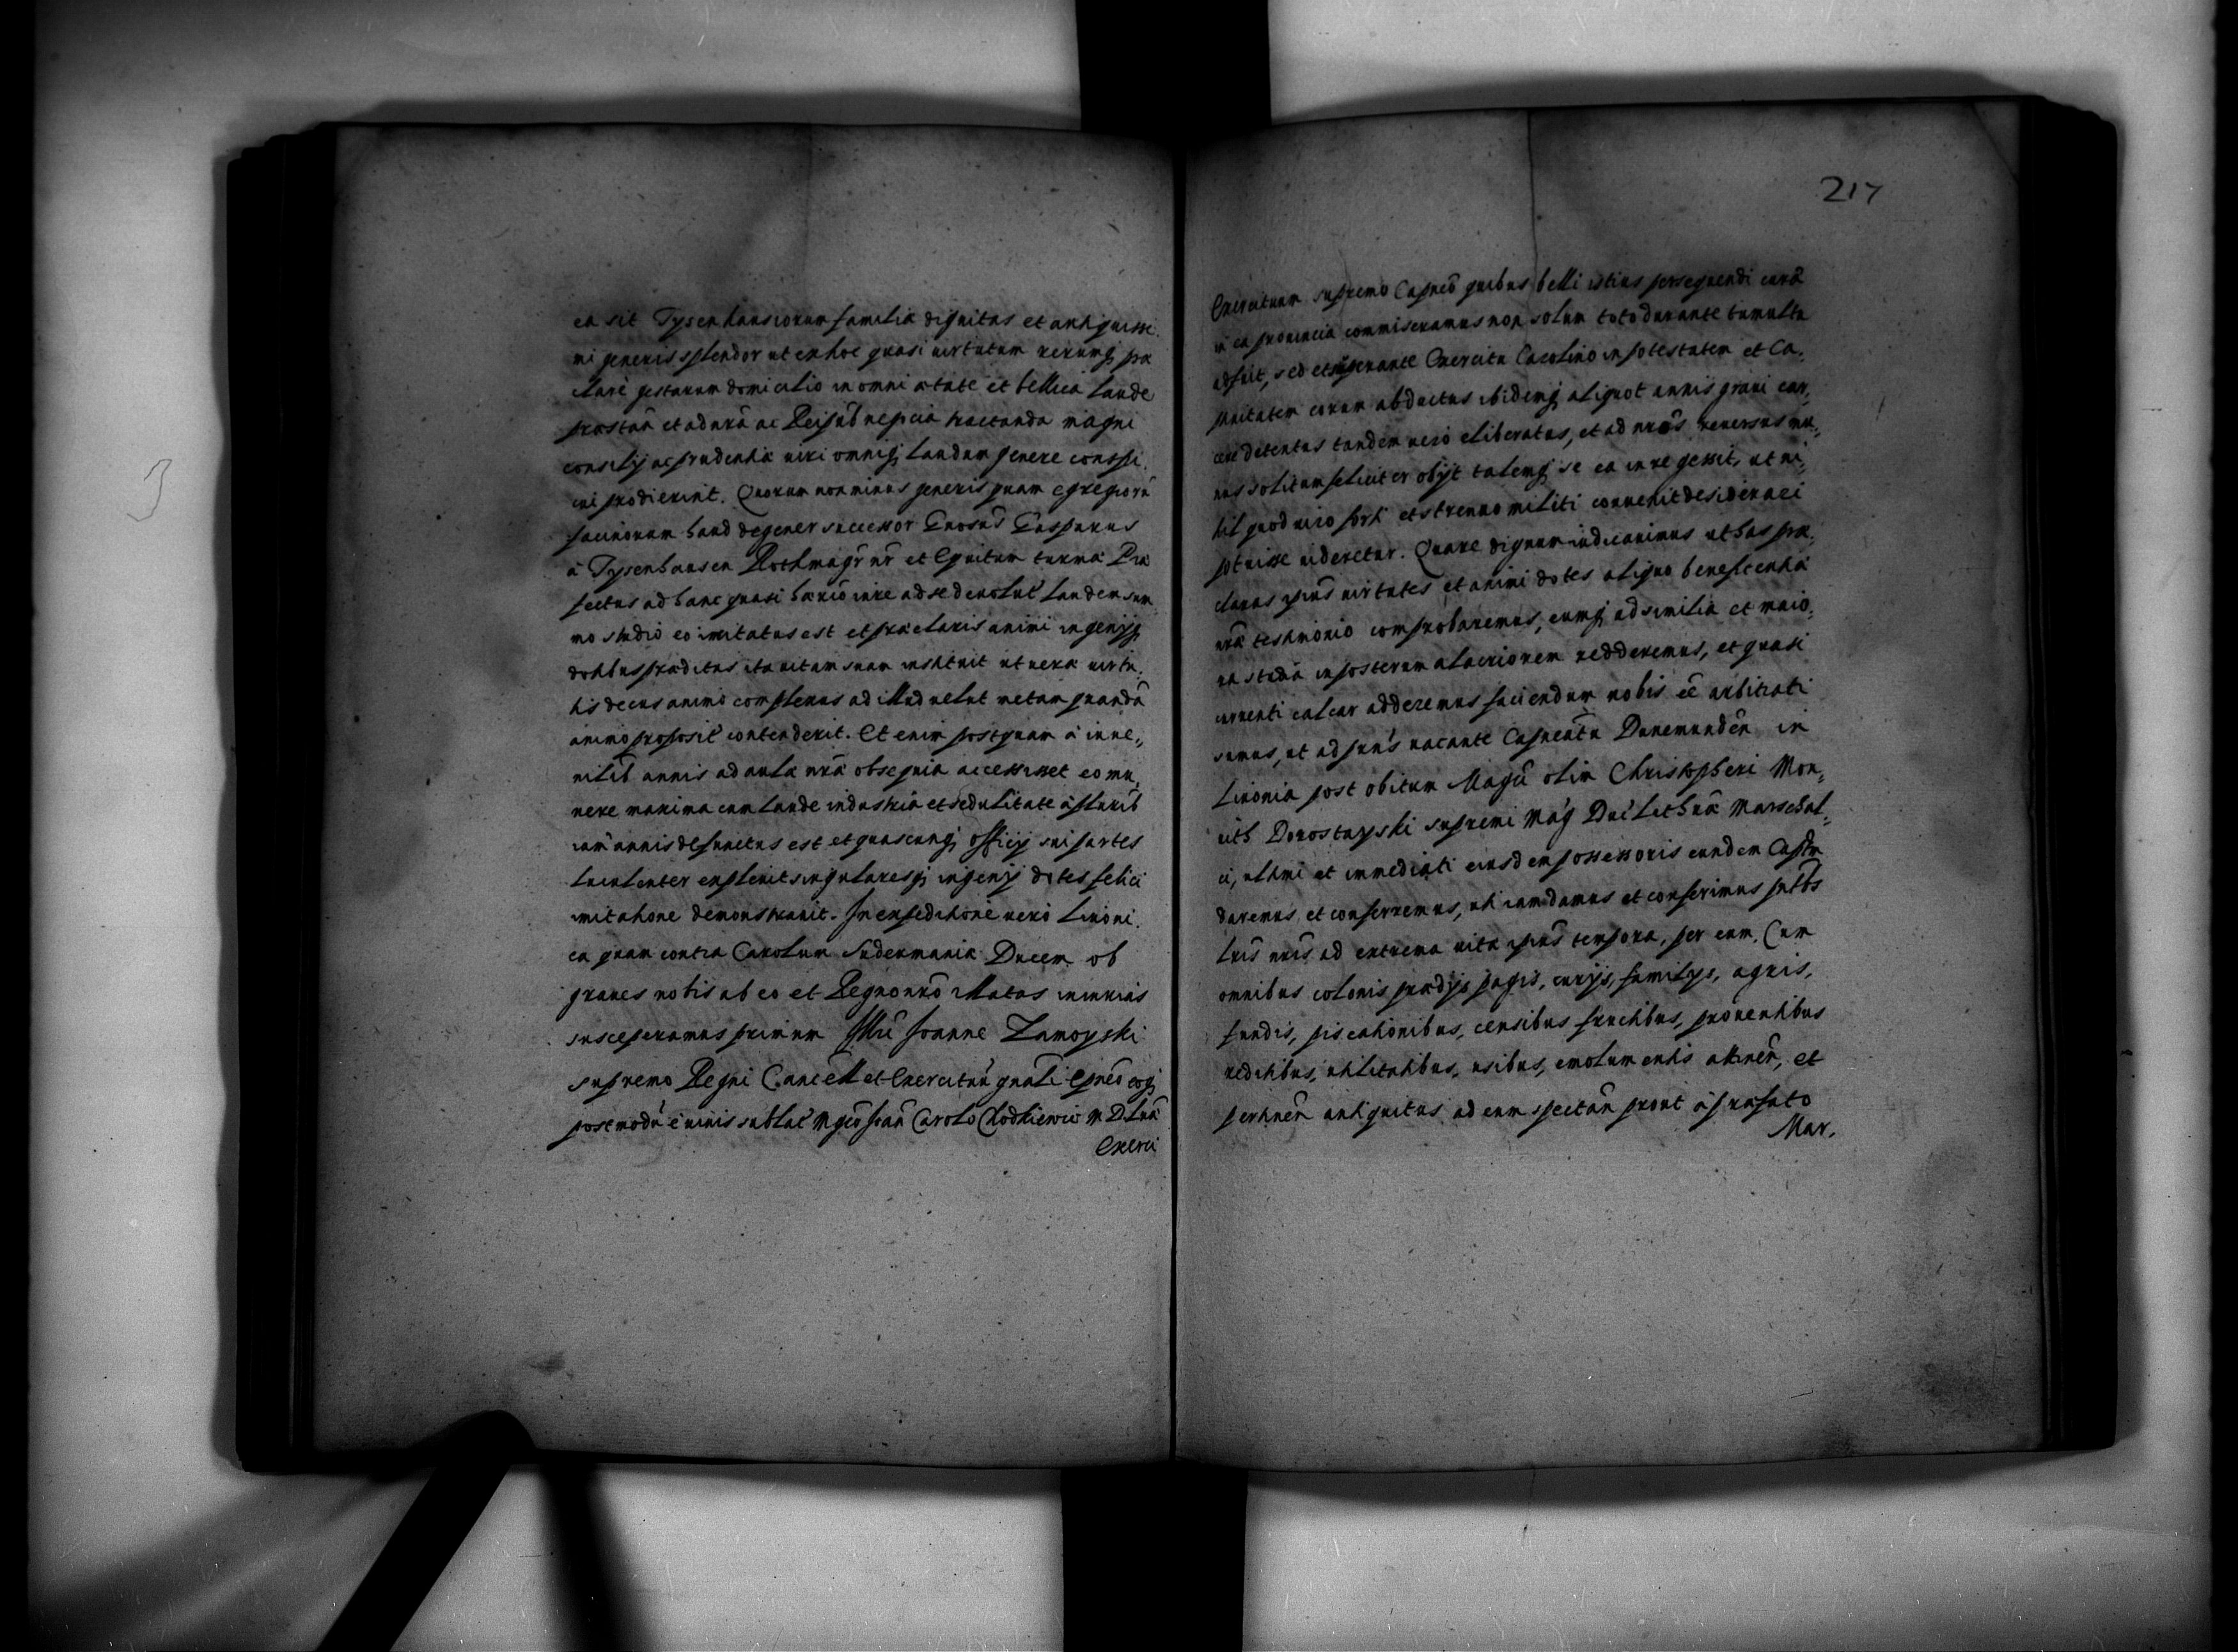 ea sit Tysenhausiorum familia dignitas et antiquissi.
mi generis splendor ut ex hoc quasi virtutum rerumq; prae
clare gestarum domicilio in omni aetate et bellica laude
praestan̄ et ad nr̄a ac Reipub̄ negicia tractanda magni
consilij ac prudentia viri omniq; laudum genere conspi.
cui prodierint. Quorum non minus generis quam egregiorū
facinorum haud degener successor Gnosus Gasparus
a Tysenhausen Rothmagr̄ nr̄ et Equitum turma Prae
fectus ad hanc quasi haerio iure ad se devolut̄ laudem sum
mo studio eo imitatus est et praeclaris animi ingenijq;
dotibus praeditus ita vitam suam instituit ut vera virtu,
tis decus animo complexus ad illud velut metam quandā
animo proposit̄ contenderit. Et enim postquam a iuve,,
nilib̄ annis ad aula nr̄a obsequia accessisset eo mu,
nere maxima cum laude industria et sedulitate a plurib̄
iam annis defunctus est et quascunq; officij sui partes
luculenter explevit singularesq; ingenij dotes felici
imitatione demonstravit. In expeditione vero Livoni.
ca quam contra Carolum Sudermania Ducem ob
graves nobis ab eo et Regno nr̄o illatas iniurias
susceperamus primum Illu Joanne Zamoyski
supremo Regni Cancell et Exercituū gnāli Cpneo eoq;
postmodū e vivis sublat̄ Mgco Joan̄ Carolo Chodkiewic M D Lnā
Exerci
217
Exercituum supremo Capneo quibus belli istius persequendi curā
in ea provincia commiseramus non solum toto durante tumultu
adfuit, sed et superante Exercitu Carolino in potestatem et Ca,
ptivitatem eorum abductus ibidemq; aliquot annis gravi car,
cere detentus tandem vero eliberatus, et ad nr̄os reversus mu,
nus solitum feliciter obijt talemq; se ea in re gessit, ut ni,
hil quod viro forti et strenuo militi convenit desiderari
potuisse videretur. Quare dignum iudicavimus ut has prae,
claras ipius virtutes et animi dotes aliquo beneficentia
nr̄a testimonio comprobaremus, eumq; ad similia et maio,
ra studia in posterum alacriorem redderemus, et quasi
currenti calcar adderemus faciendum nobis eē arbitrati
sumus, ut ad pun̄s vacante Capneātu Dunemunden̄ in
Livonia post obitum Magci olim Christopheri Mon,
vith Dorostayski supremi Mag Duc̄ Lithua Marschal,
ci, ultimi et immediati eiusdem possessoris eundem Castr̄
daremus et conferremus, uti iam damus et conferimus pn̄tbs
lris nr̄is ad extrema vitae ipius tempora, per eum. Cum
omnibus colonis praedijs pagis, curijs, familijs, agris,
fundis, piscationibus, censibus fructibus, proventibus
reditibus, utilitatibus, usibus, emolumentis attinen̄, et
pertinen̄ antiquitus ad eum spectan̄ prout a praefato
Mar.
3